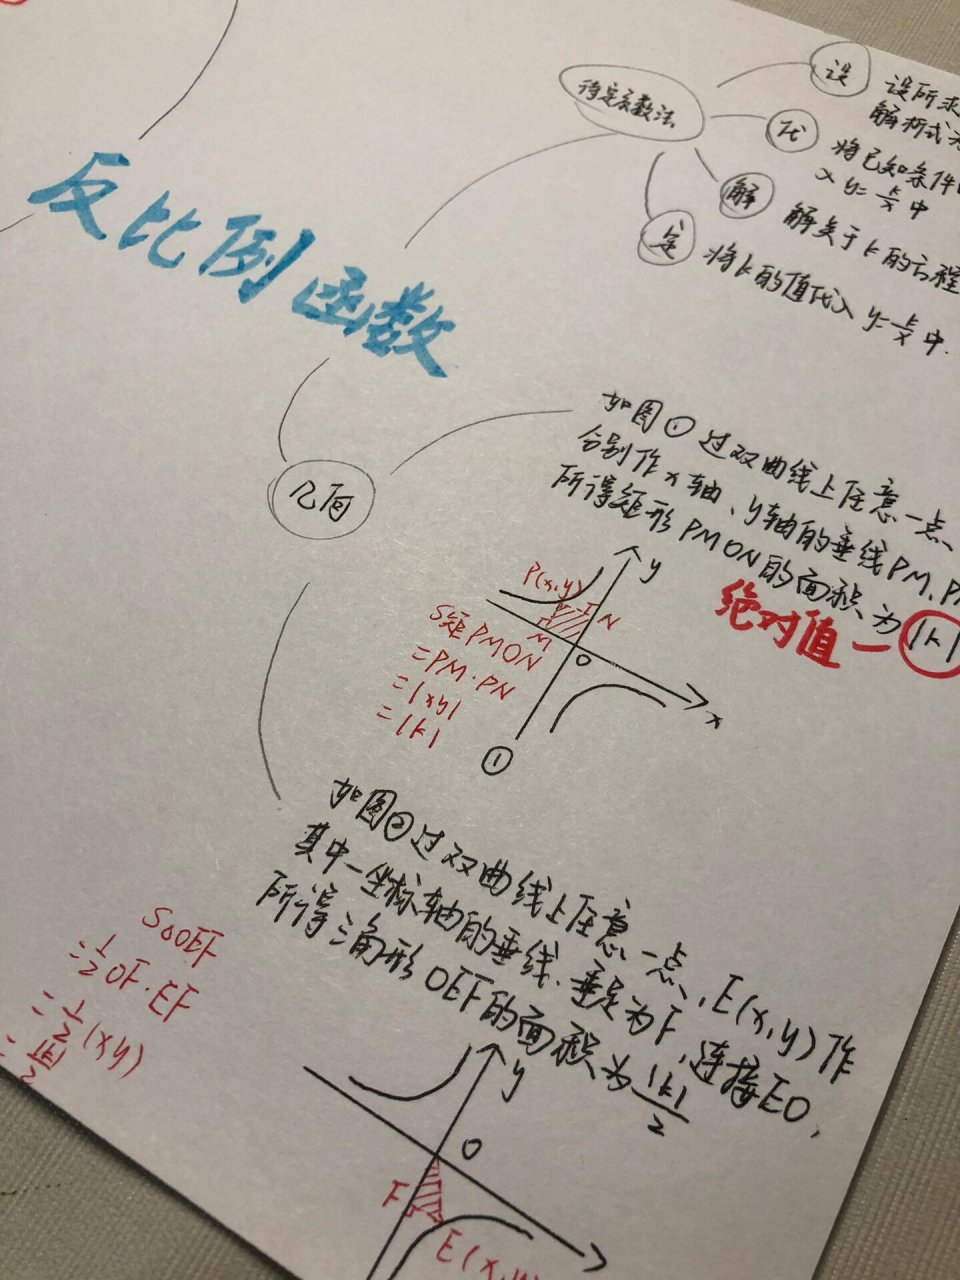 反比例函数
待定系数法
设
设所求
解析式为
代
将已知条件代
入 y=k/x 中
解
解关于k的方程
定
将k的值代入 y=k/x 中.
几何
如图①过双曲线上任意一点、
分别作x轴、y轴的垂线PM.PN
所得矩形PMON的面积为|k|
绝对值
P(x,y)
y
N
M
O
x
①
S矩PMON
=PM·PN
=|xy|
=|k|
如图②过双曲线上任意一点、E(x,y)作
其中一坐标轴的垂线.垂足为F,连接EO,
所得三角形OEF的面积为|k|/2
S△OEF
=1/2 OF·EF
=1/2 |xy|
y
O
F
E(x,y)